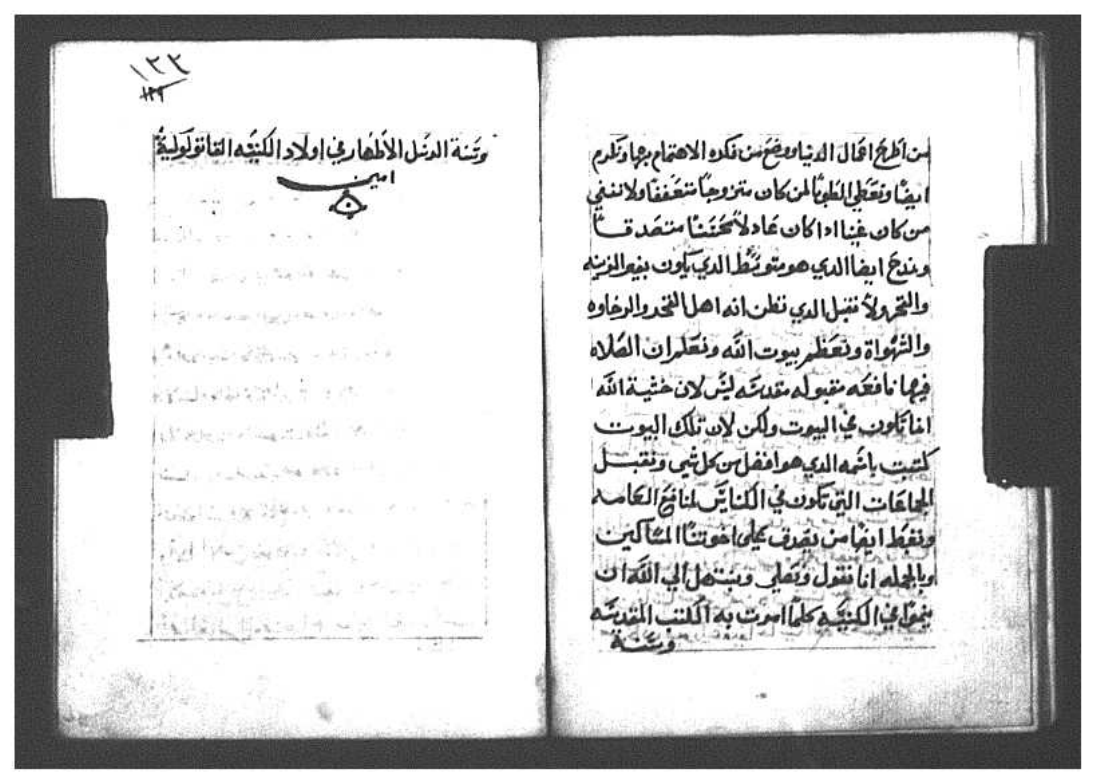 من اطرح اعمال الدنيا ورفع من فكره الاهتمام بها ونكرم
ايضًا ونعطي الطوبا لمن كان متزوجًا متعففًا ولا ننفي
من كان غنيا اذا كان عادلاً محتننا متصدقًا
ونمدح ايضا الدي هو متوسط الدي يكون بغير الزينه
والتخم ولا نقبل الدي نظن انه اهل التخدر والرخاوه
والشهواة ونعظم بيوت الله ونعلم ان الصلاه
فيها نافعه مقبوله مقدسه ليس لان خشية الله
انما تكون في البيوت ولكن لان تلك البيوت
كتبت باسمه الدي هو افضل من كل شي ونقبل
الجماعات التي تكون في الكنايس لمنافع العامه
ونغبط ايضًا من يصدف علي اخوتنا المساكين
وبالجمله انا نقول ونصلي ونبتهل الي الله ان
ينموا في الكنيسه كلما امرت به الكتب المقدسه
وسنة
١٣٣
١٢٩
وسنة الرسل الاطهار في اولاد الكنيسه القاتوليقيه
امين